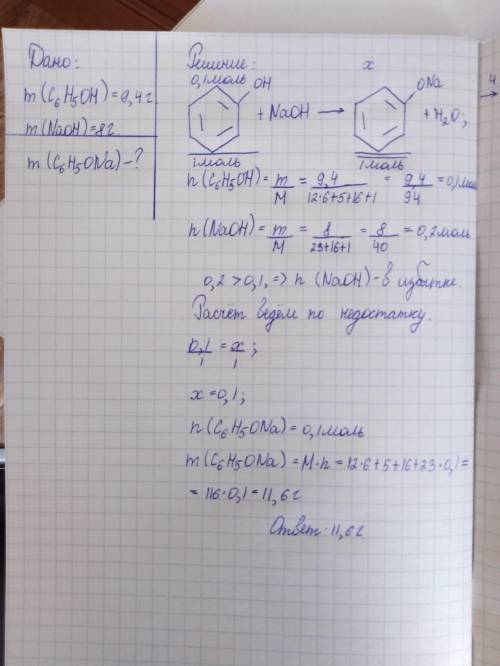 Дано:
m(C₆H₅OH)=9,4г
m(NaOH)=8г
m(C₆H₅ONa)-?
Решение:
0,1моль
x
OH
+NaOH →
ONa
+H₂O;
1моль
1моль
n(C₆H₅OH)= m/M = 9,4/12·6+5+16+1 = 9,4/94 =0,1моль
n(NaOH)= m/M = 8/23+16+1 = 8/40 = 0,2моль
0,2 > 0,1, => n (NaOH)-в избытке.
Расчёт ведём по недостатку.
0,1/1 = x/1;
x=0,1;
n(C₆H₅ONa)=0,1моль
m(C₆H₅ONa)=M·n=12·6+5+16+23·0,1=
= 116·0,1=11,6г
Ответ: 11,6г.
4